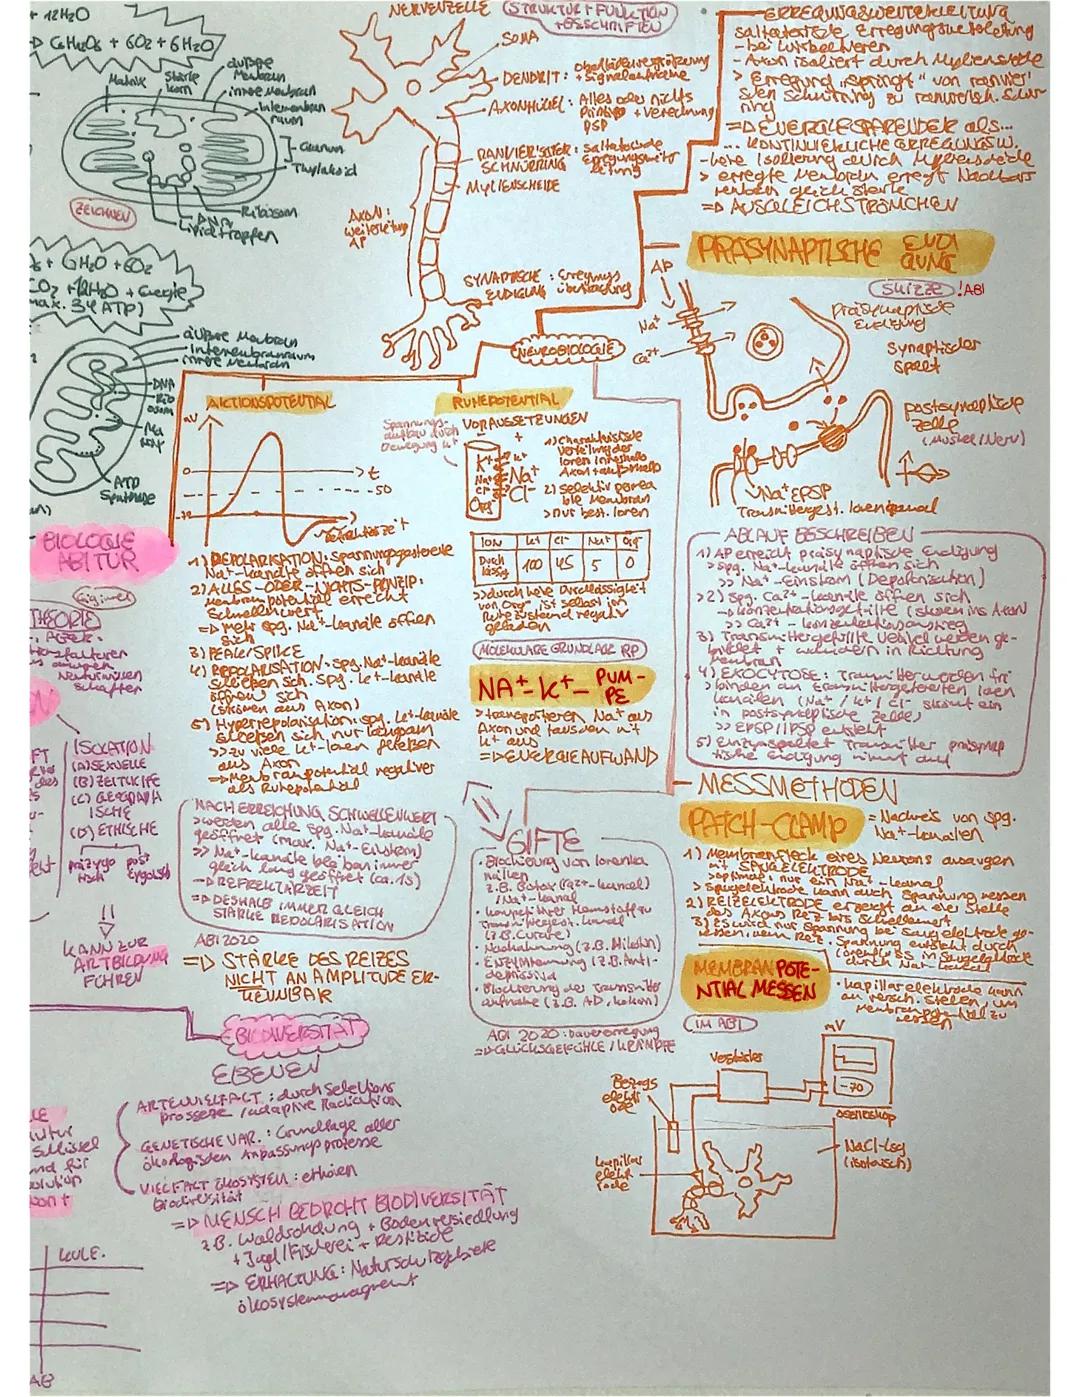 + 12H₂O
=> C₆H₁₂O₆ + 6O₂ + 6H₂O
Matrix
Stärke
korn
äußere
Membran
innere Membran
Intermembran
raum
Granum
Thylakoid
Ribosom
DNA
Lipidtropfen
ZEICHNEN
+ 6H₂O + 6O₂
CO₂ + 12H₂O + Energie
max. 34 ATP)
äußere Membran
Intermembranraum
innere Membran
DNA
Rib
osom
Ma
trix
ATP
Synthase
BIOLOGIE
ABITUR
THEORIE
ISOLATION
(A) SEXUELLE
(B) ZEITLICHE
(C) GEOGRAPH
ISCHE
(D) ETHISCHE
präzygo
tisch
post
zygotisch
KANN ZUR
ARTBILDUNG
FÜHREN
NERVENZELLE
STRUKTUR + FUNKTION
+ BESCHRIFTEN
SOMA
DENDRIT: Oberflächenvergrößerung
+ Signalaufnahme
AXONHÜGEL: Alles oder nichts
Prinzip + Verrechnung
PSP
RANVIER'SCHER: saltatorische
SCHNÜRRING Erregungsweiter
leitung
MYLIENSCHEIDE
AXON:
Weiterleitung
AP
SYNAPTISCHE: Erregungs
ENDIGUNG übertragung
ERREGUNGSWEITERLEITUNG
saltatorische Erregungsweiterleitung
- bei Wirbeltieren
- Axon isoliert durch Myelinscheide
> Erregung "springt" von ranvier'
schen Schnürring zu ranvierisch. Schnür
ring
=> ENERGIESPARENDER als...
... KONTINUIERLICHE ERREGUNGSW.
- keine Isolierung durch Myelinscheide
> erregte Membran erregt Nachbars
membran gleich stark
=> AUSGLEICHSTRÖMCHEN
PRÄSYNAPTISCHE ENDI
GUNG
Skizze !ABI
AP
Na⁺
Ca²⁺
präsynaptische
Endigung
synaptischer
spalt
postsynaptische
Zelle
(Muskel/Nerv)
Na⁺ EPSP
Transmittergest. Ionenkanal
NEUROBIOLOGIE
AKTIONSPOTENTIAL
mV
0
-50
-70
t
Refraktärzeit
1) DEPOLARISATION: Spannungsgesteuerte
Na⁺-Kanäle öffnen sich
2) ALLES-ODER-NICHTS-PRINZIP:
Membranpotential erreicht
Schwellenwert
=> mehr spg. Na⁺-Kanäle öffnen
sich
3) PEAK/SPIKE
4) REPOLARISATION: spg. Na⁺-Kanäle
schließen sich. spg. K⁺-Kanäle
öffnen sich
(strömen aus Axon)
5) Hyperpolarisation: spg. K⁺-Kanäle
schließen sich nur langsam
>> zu viele K⁺-Ionen fließen
aus Axon
=> Membranpotential negativer
als Ruhepotential
NACH ERREICHUNG SCHWELLENWERT
> werden alle spg. Na⁺-Kanäle
geöffnet (max. Na⁺-Einstrom)
>> Na⁺-Kanäle bleiben immer
gleich lang geöffnet (ca. 1s)
-> REFREKTÄRZEIT
=> DESHALB IMMER GLEICH
STARKE DEPOLARISATION
ABI 2020
=> STÄRKE DES REIZES
NICHT AN AMPLITUDE ER-
KENNBAR
RUHEPOTENTIAL
Spannungs-
aufbau durch
Bewegung K⁺
VORAUSSETZUNGEN
1) charakteristische
Verteilung der
Ionen innerhalb
Axon + außerhalb
2) selektiv permea
ble Membran
> nur best. Ionen
K⁺
Na⁺
Cl⁻
Org⁻
ION K⁺ Cl⁻ Na⁺ Org⁻
Durch
lässig 100 45 5 0
>> durch keine Durchlässigkeit
von Org⁻ ist selbst im
Ruhezustand negativ
geladen
MOLEKULARE GRUNDLAGE RP
NA⁺-K⁺-PUM-
PE
> transportieren Na⁺ aus
Axon und tauschen mit
K⁺ aus
=> ENERGIEAUFWAND
GIFTE
• Blockierung von Ionenka
nälen
z.B. Botox (Ca²⁺-Kanal)
/Na⁺-Kanal
• kompetitiver Hemmstoff zu
Transmittergest. Kanal
(z.B. Curare)
• Nachahmung (z.B. Nikotin)
• Enzymhemmung (z.B. Anti-
depressiva
• Blockierung der Transmitter
aufnahme (z.B. AD, Kokain)
ABI 2020: Dauererregung
=> GLÜCKSGEFÜHLE / KRÄMPFE
ABLAUF BESCHREIBEN
1) AP erreicht präsynaptische Endigung
> spg. Na⁺-Kanäle öffnen sich
>> Na⁺-Einstrom (Depolarisation)
>2) spg. Ca²⁺-Kanäle öffnen sich
-> Konzentrationsgefälle (strömen ins Axon)
>> Ca²⁺-Konzentrationsanstieg
3) Transmittergefüllte Vesikel werden ge-
bildet + wandern in Richtung
Membran
4) EXOCYTOSE: Transmitter werden frei
> binden an transmittergesteuerten Ionen
kanälen (Na⁺/K⁺/Cl⁻ strömt ein
in postsynaptische Zelle)
>> EPSP/IPSP entsteht
5) Enzym spaltet Transmitter präsynap
tische Endigung nimmt auf
MESSMETHODEN
PATCH-CLAMP = Nachweis von spg.
Na⁺-Kanälen
1) Membranfleck eines Neurons ansaugen
mit SAUGELEKTRODE
> optimal: nur ein Na⁺-Kanal
> Saugelektrode kann auch Spannung messen
2) REIZELEKTRODE erzeugt an einer Stelle
des Axons Reiz bis Schwellenwert
3) Es wird nur Spannung bei Saugelektrode ge-
messen, wenn Reiz. Spannung entsteht durch
Ionenfluss in Saugelektrode
durch Na⁺-Kanal
MEMBRANPOTE-
NTIAL MESSEN
• Kapillarelektrode kann
an versch. Stellen, um
Membranpotential zu
messen
IM ABI
mV
-70
Verstärker
Oszilloskop
Bezugs
elektr
ode
Kapillar
elekt
rode
NaCl-Lsg
(isotonisch)
BIODIVERSITÄT
EBENEN
ARTENVIELFALT: durch Selektions
prozesse / adaptive Radiation
GENETISCHE VAR.: Grundlage aller
ökologischen Anpassungsprozesse
VIELFALT ÖKOSYSTEM: erhöhen
Biodiversität
=> MENSCH BEDROHT BIODIVERSITÄT
z.B. Waldrohdung + Bodenversiedlung
+ Jagd/Fischerei + Pestizide
=> ERHALTUNG: Naturschutzgebiete
ökosystemmanagment
KULE.